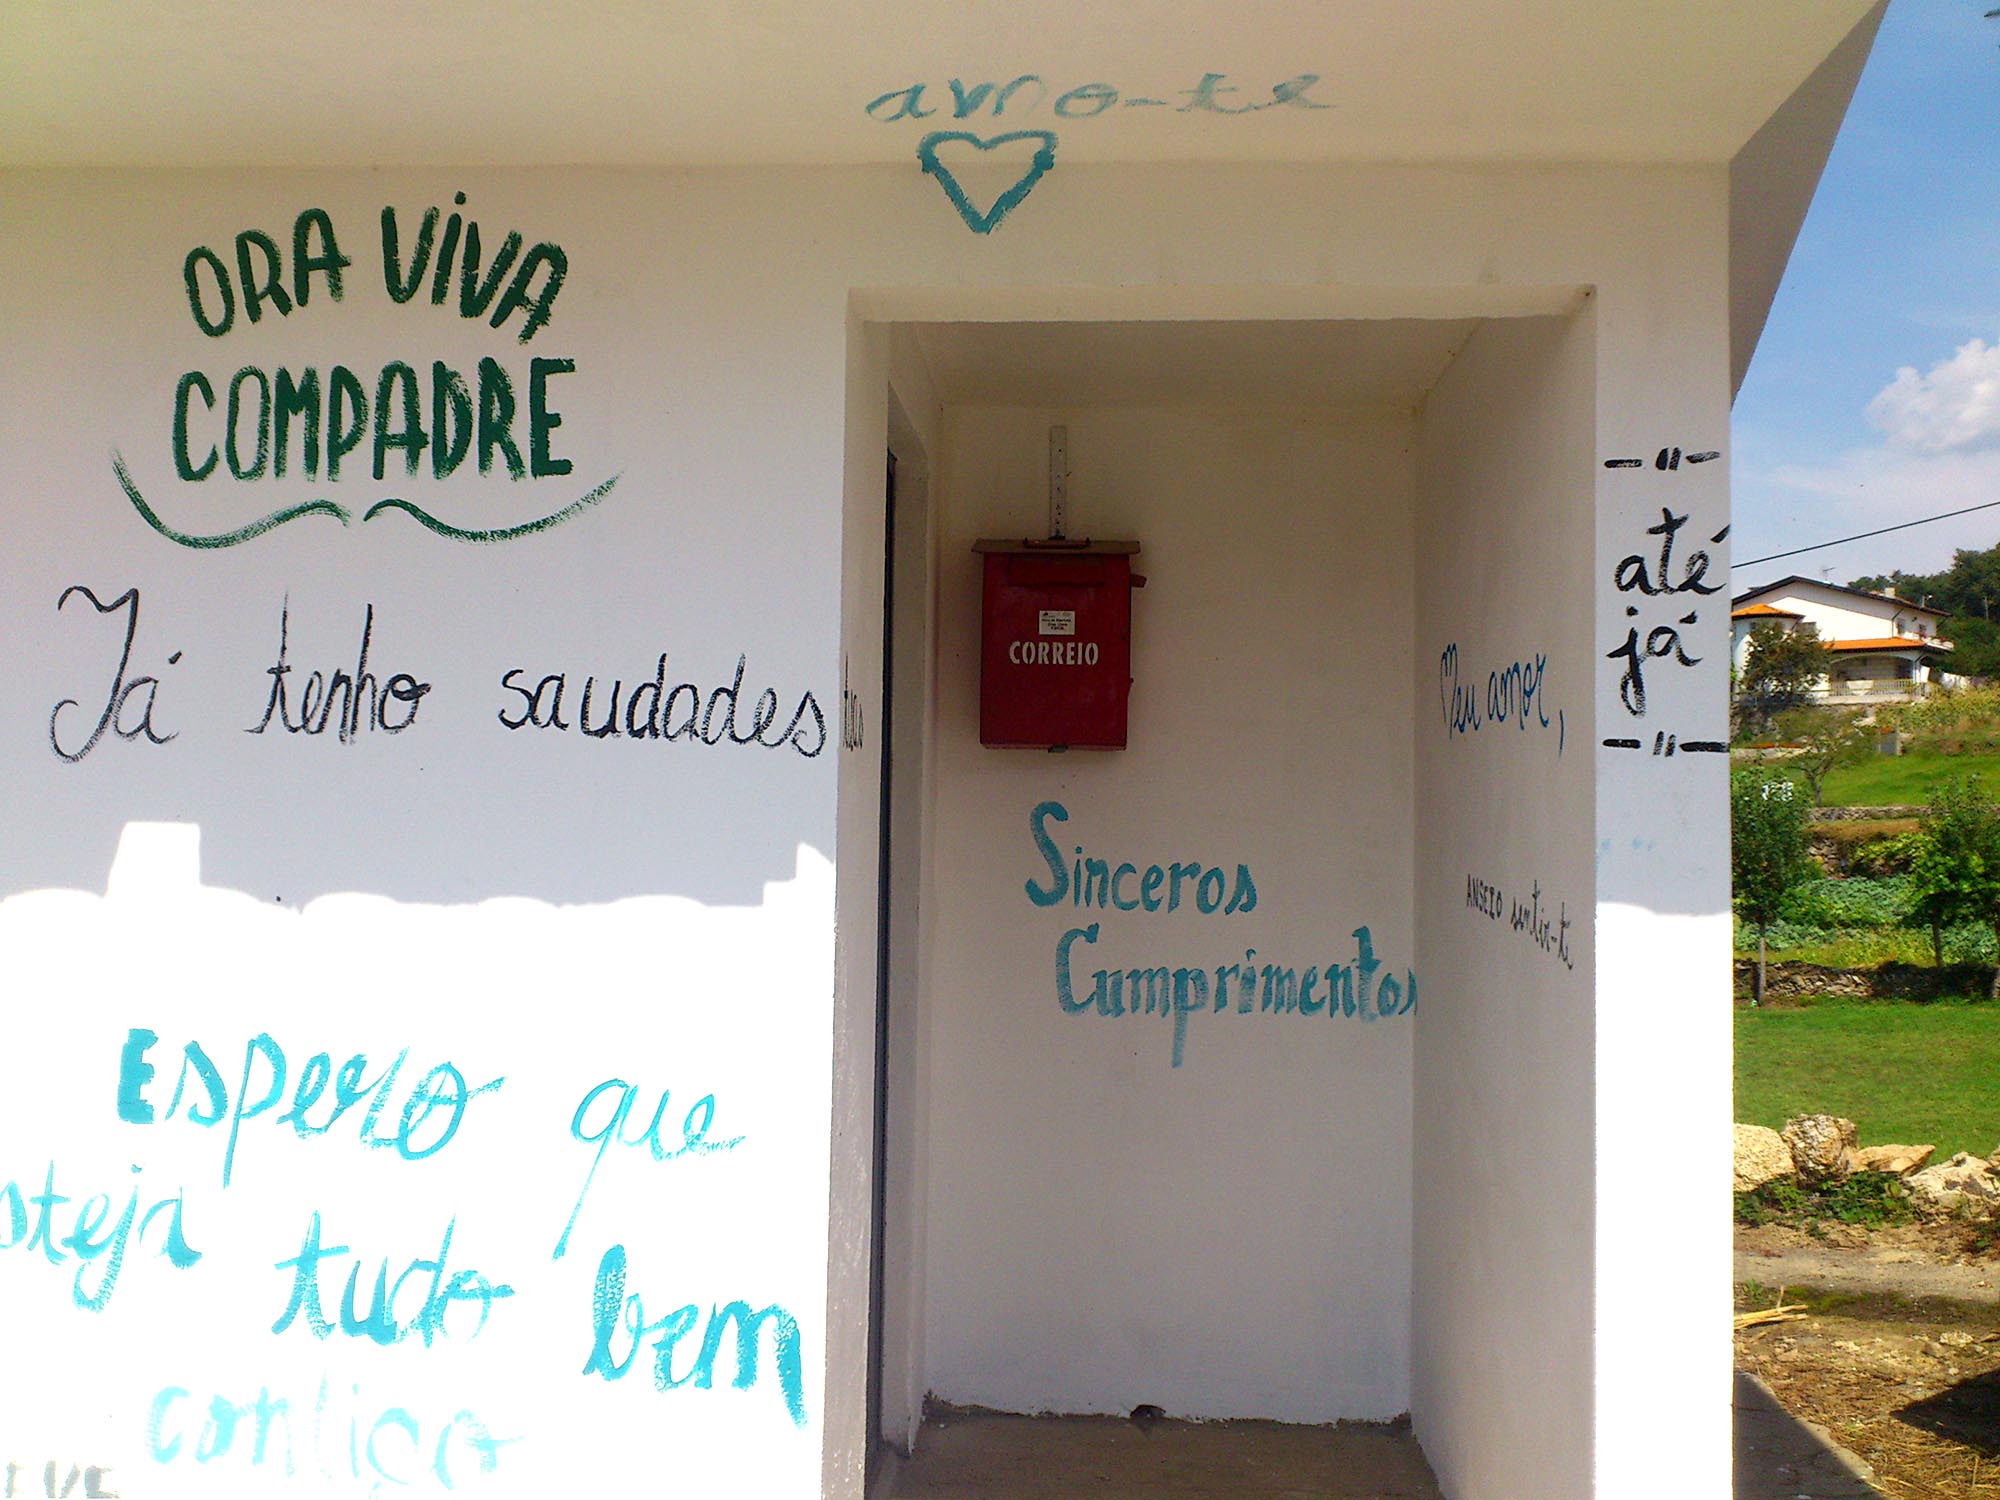 amo-te
ORA VIVA
COMPADRE
Já tenho saudades tuas
CORREIO
Sinceros
Cumprimentos
Meu amor,
ANSEIO sentir-te
-"-
até
já
-"-
Espero que
steja tudo bem
contigo